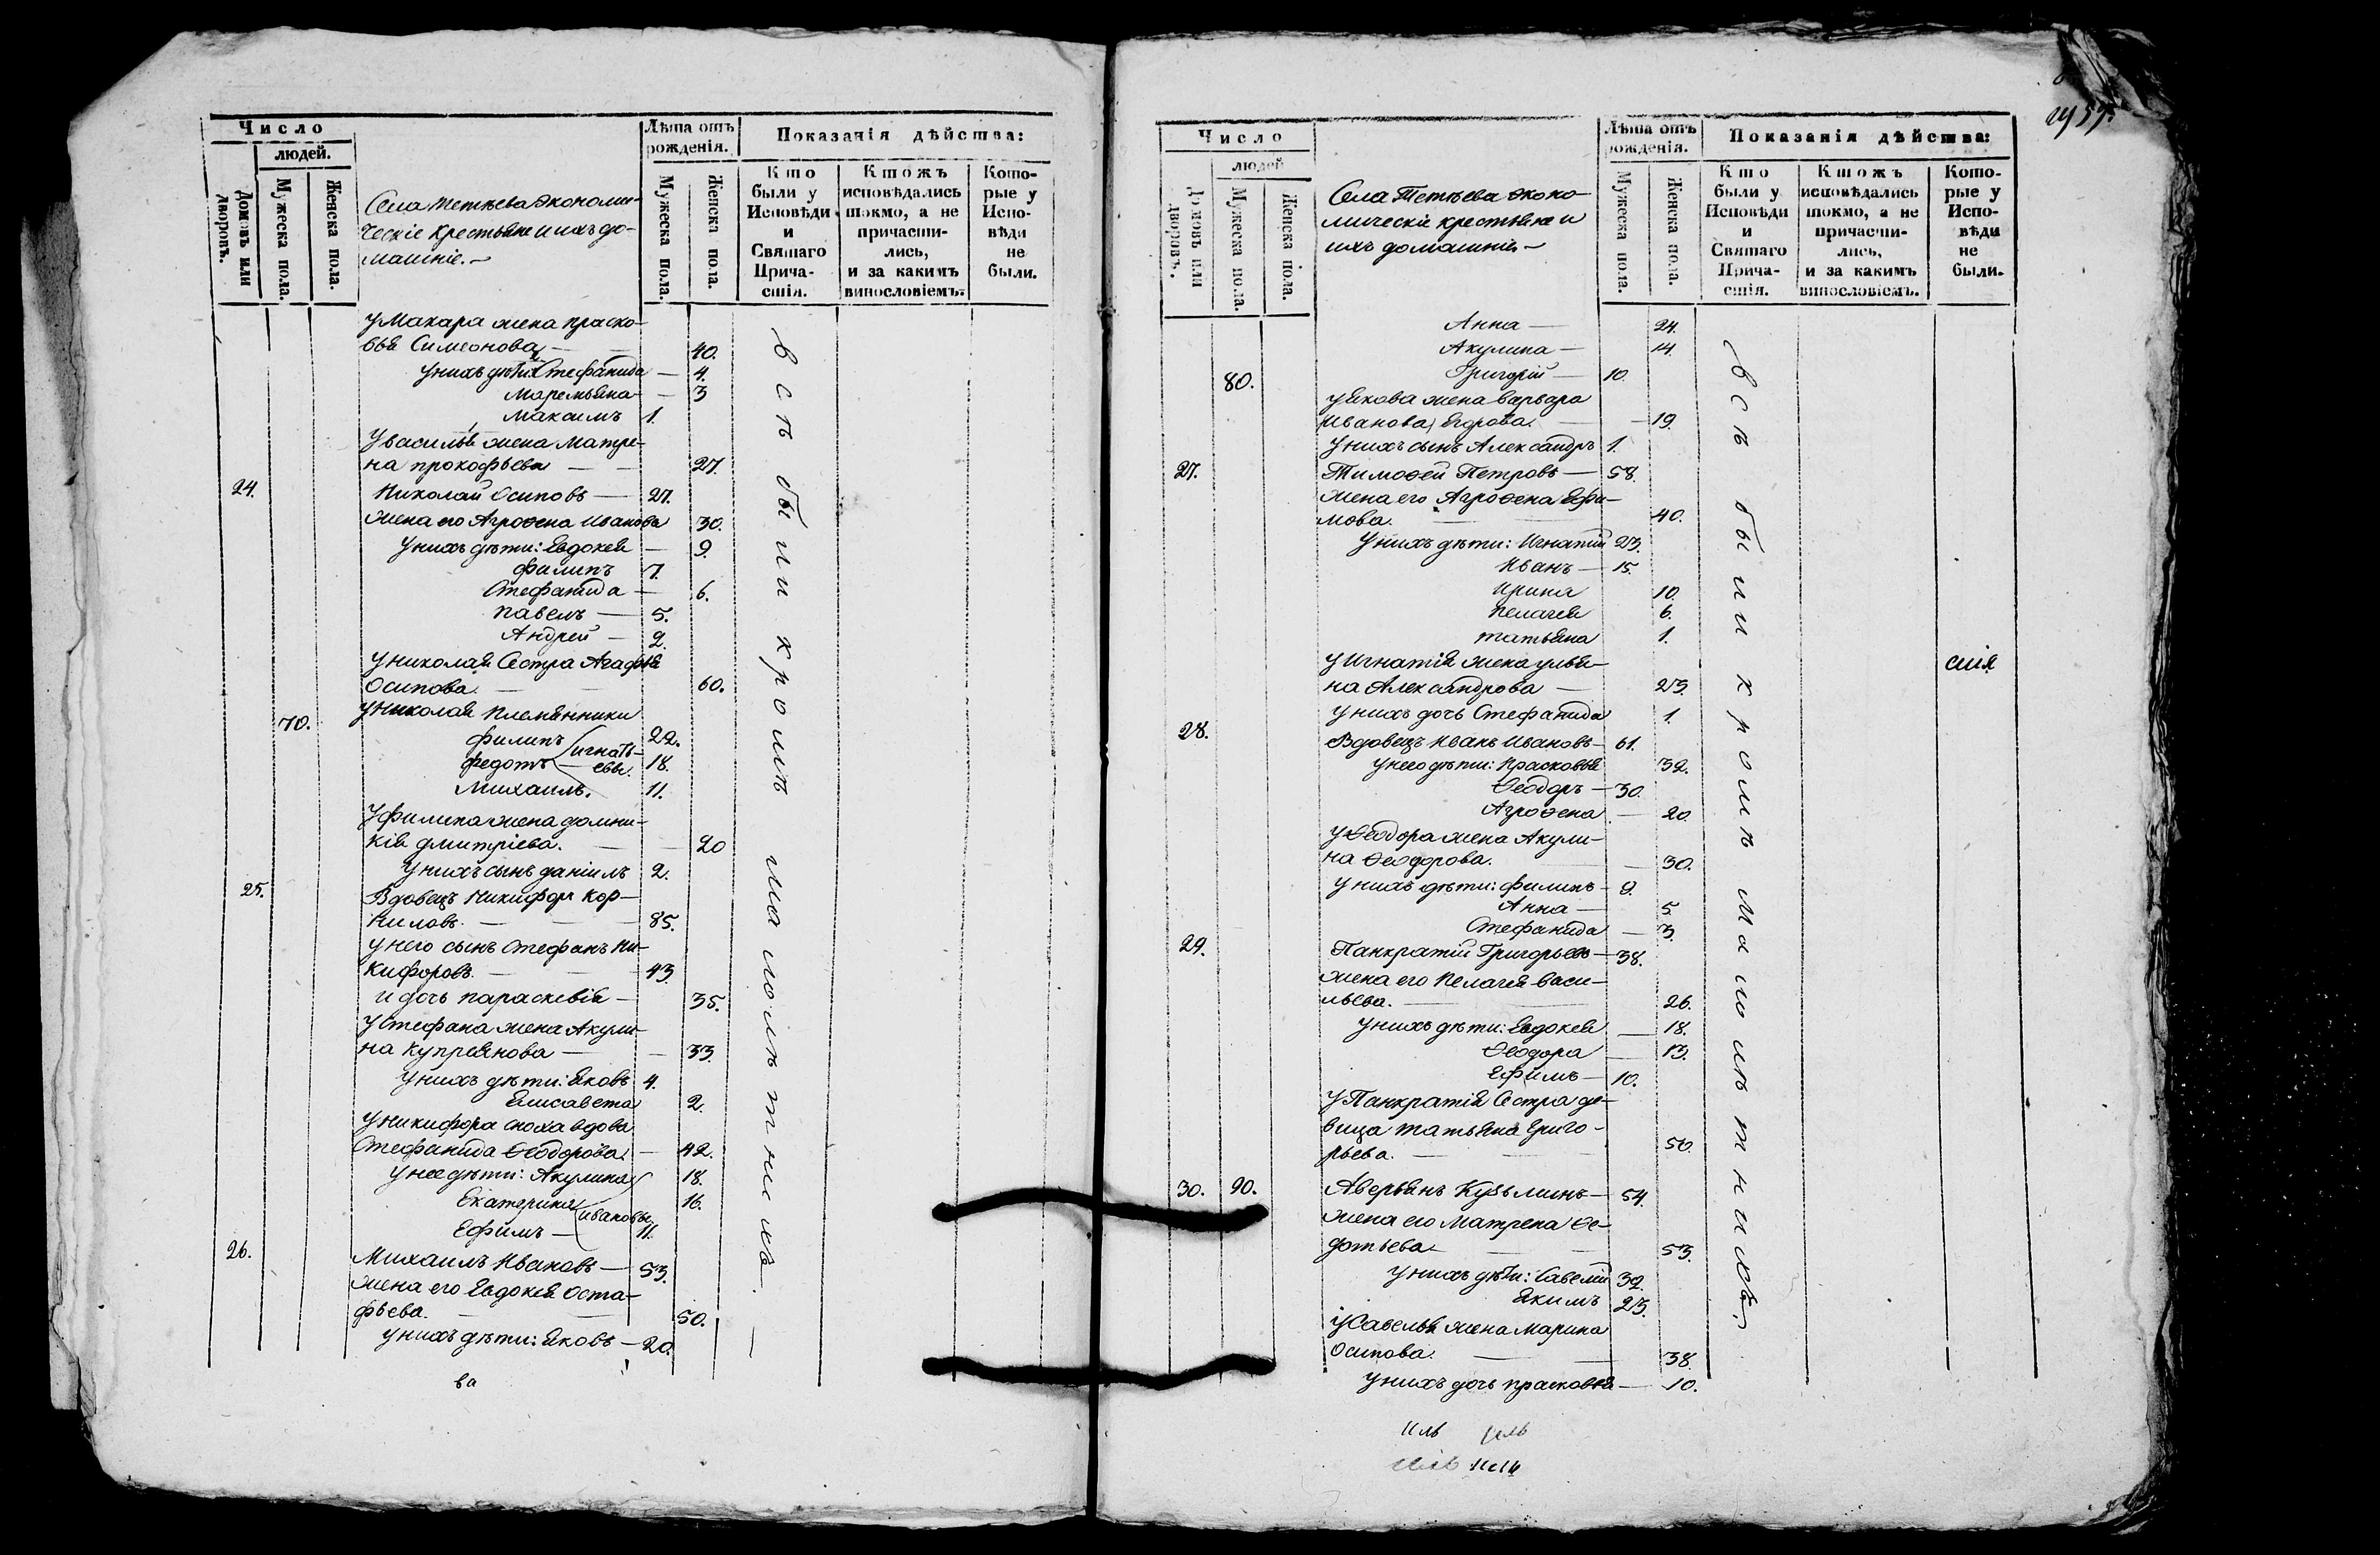 Число
людей.
Домовъ или дворовъ.
Мужеска пола.
Женска пола.
Села Тетѣева Экономи-
ческіе Крестьяне и ихъ до-
машніе.-
Лѣта отъ рожденія.
Мужеска пола.
Женска пола.
Показанія дѣйства:
Кто были у Исповѣди и Святаго Причастія.
Ктожъ исповѣдались токмо, а не причастились, и за какимъ винословіемъ.
Которые у Исповѣди не были.
у Макара жена Праско-
вья Симеонова — 40.
у нихъ дѣти Стефанида — 4.
Маремьяна — 3
Максимъ 1.
У василья жена Матре-
на прокофьева — 27.
24. Николай Осиповъ — 27.
жена его Агроѳена Иванова 30.
у нихъ дѣти: Евдокея — 9.
филипъ 7.
Стефанида — 6.
павелъ — 5.
Андрей — 2.
у николая Сестра Агафья
Осипова. — 60.
70. у Николая племянники
филипъ 22.
федотъ — игнатьевы. 18.
Михаилъ. 11.
у филипа жена домни-
кія дмитріева. — 20
у нихъ сынъ даніилъ 2.
25. Вдовецъ Никифор Кор-
ниловъ. — 85.
у него сынъ Стефанъ Ни-
кифоровъ. — 43.
и дочь параскевія — 35.
у Стефана жена Акули-
на Купреянова — 33.
у нихъ дѣти: Яковъ 4.
Елисавета 2.
у никифора сноха вдова
Стефанида Ѳеодорова. — 42.
у нее дѣти: Акулина 18.
Екатерина 16.
ивановы
Ефимъ — 11.
26. Михаилъ Ивановъ — 53.
жена его Евдокея Оста-
фьева. — 50.
у нихъ дѣти: Яковъ — 20.
ва
всѣ были кромѣ малолѣтнихъ. —
Число
людей
Домовъ или дворовъ.
Мужеска пола.
Женска пола.
Села Тетѣева Эконо-
мическіе крестьяне и
ихъ домашніе. —
Лѣта отъ рожденія.
Мужеска пола.
Женска пола.
Показанія дѣйства:
Кто были у Исповѣди и Святаго Причастія.
Ктожъ исповѣдались токмо, а не причастились, и за какимъ винословіемъ.
Которые у Исповѣди не были.
Анна — 24.
Акулина — 14.
80. Григорій — 10.
у Якова жена варвара
Иванова — 19.
у нихъ сынъ Александръ 1.
27. Тимоѳей Петровъ — 58.
жена его Агроѳена Ефи-
мова. — 40.
у нихъ дѣти: Игнатій 23.
Иванъ — 15.
Ирина 10.
пелагея 6.
татьяна 1.
у Игнатія жена улья-
на Александрова — 23.
у нихъ дочь Стефанида 1.
28. Вдовецъ Иванъ Ивановъ — 61.
у него дѣти: Прасковья 32.
Ѳеодоръ — 30.
Агроѳена — 20.
у Ѳеодора жена Акули-
на Ѳеодорова. — 30.
у нихъ дѣти: филипъ — 9.
Анна — 5.
Стефанида — 3.
29. Панкратій Григорьевъ — 38.
жена его Пелагея васи-
льева. — 26.
у нихъ дѣти: Евдокея — 18.
Ѳеодора — 13.
Ефимъ — 10.
у Панкратія Сестра де-
вица татьяна григо-
рьева. — 50.
30. 90. Аверьянъ Кузьминъ — 54.
жена его Матрена Ѳе-
дотьева — 53.
у нихъ дѣти: Савелій 32.
Якимъ 23.
у Савелья жена Марина
Осипова. — 38.
у нихъ дочь прасковья — 10.
всѣ были кромѣ малолѣтнихъ